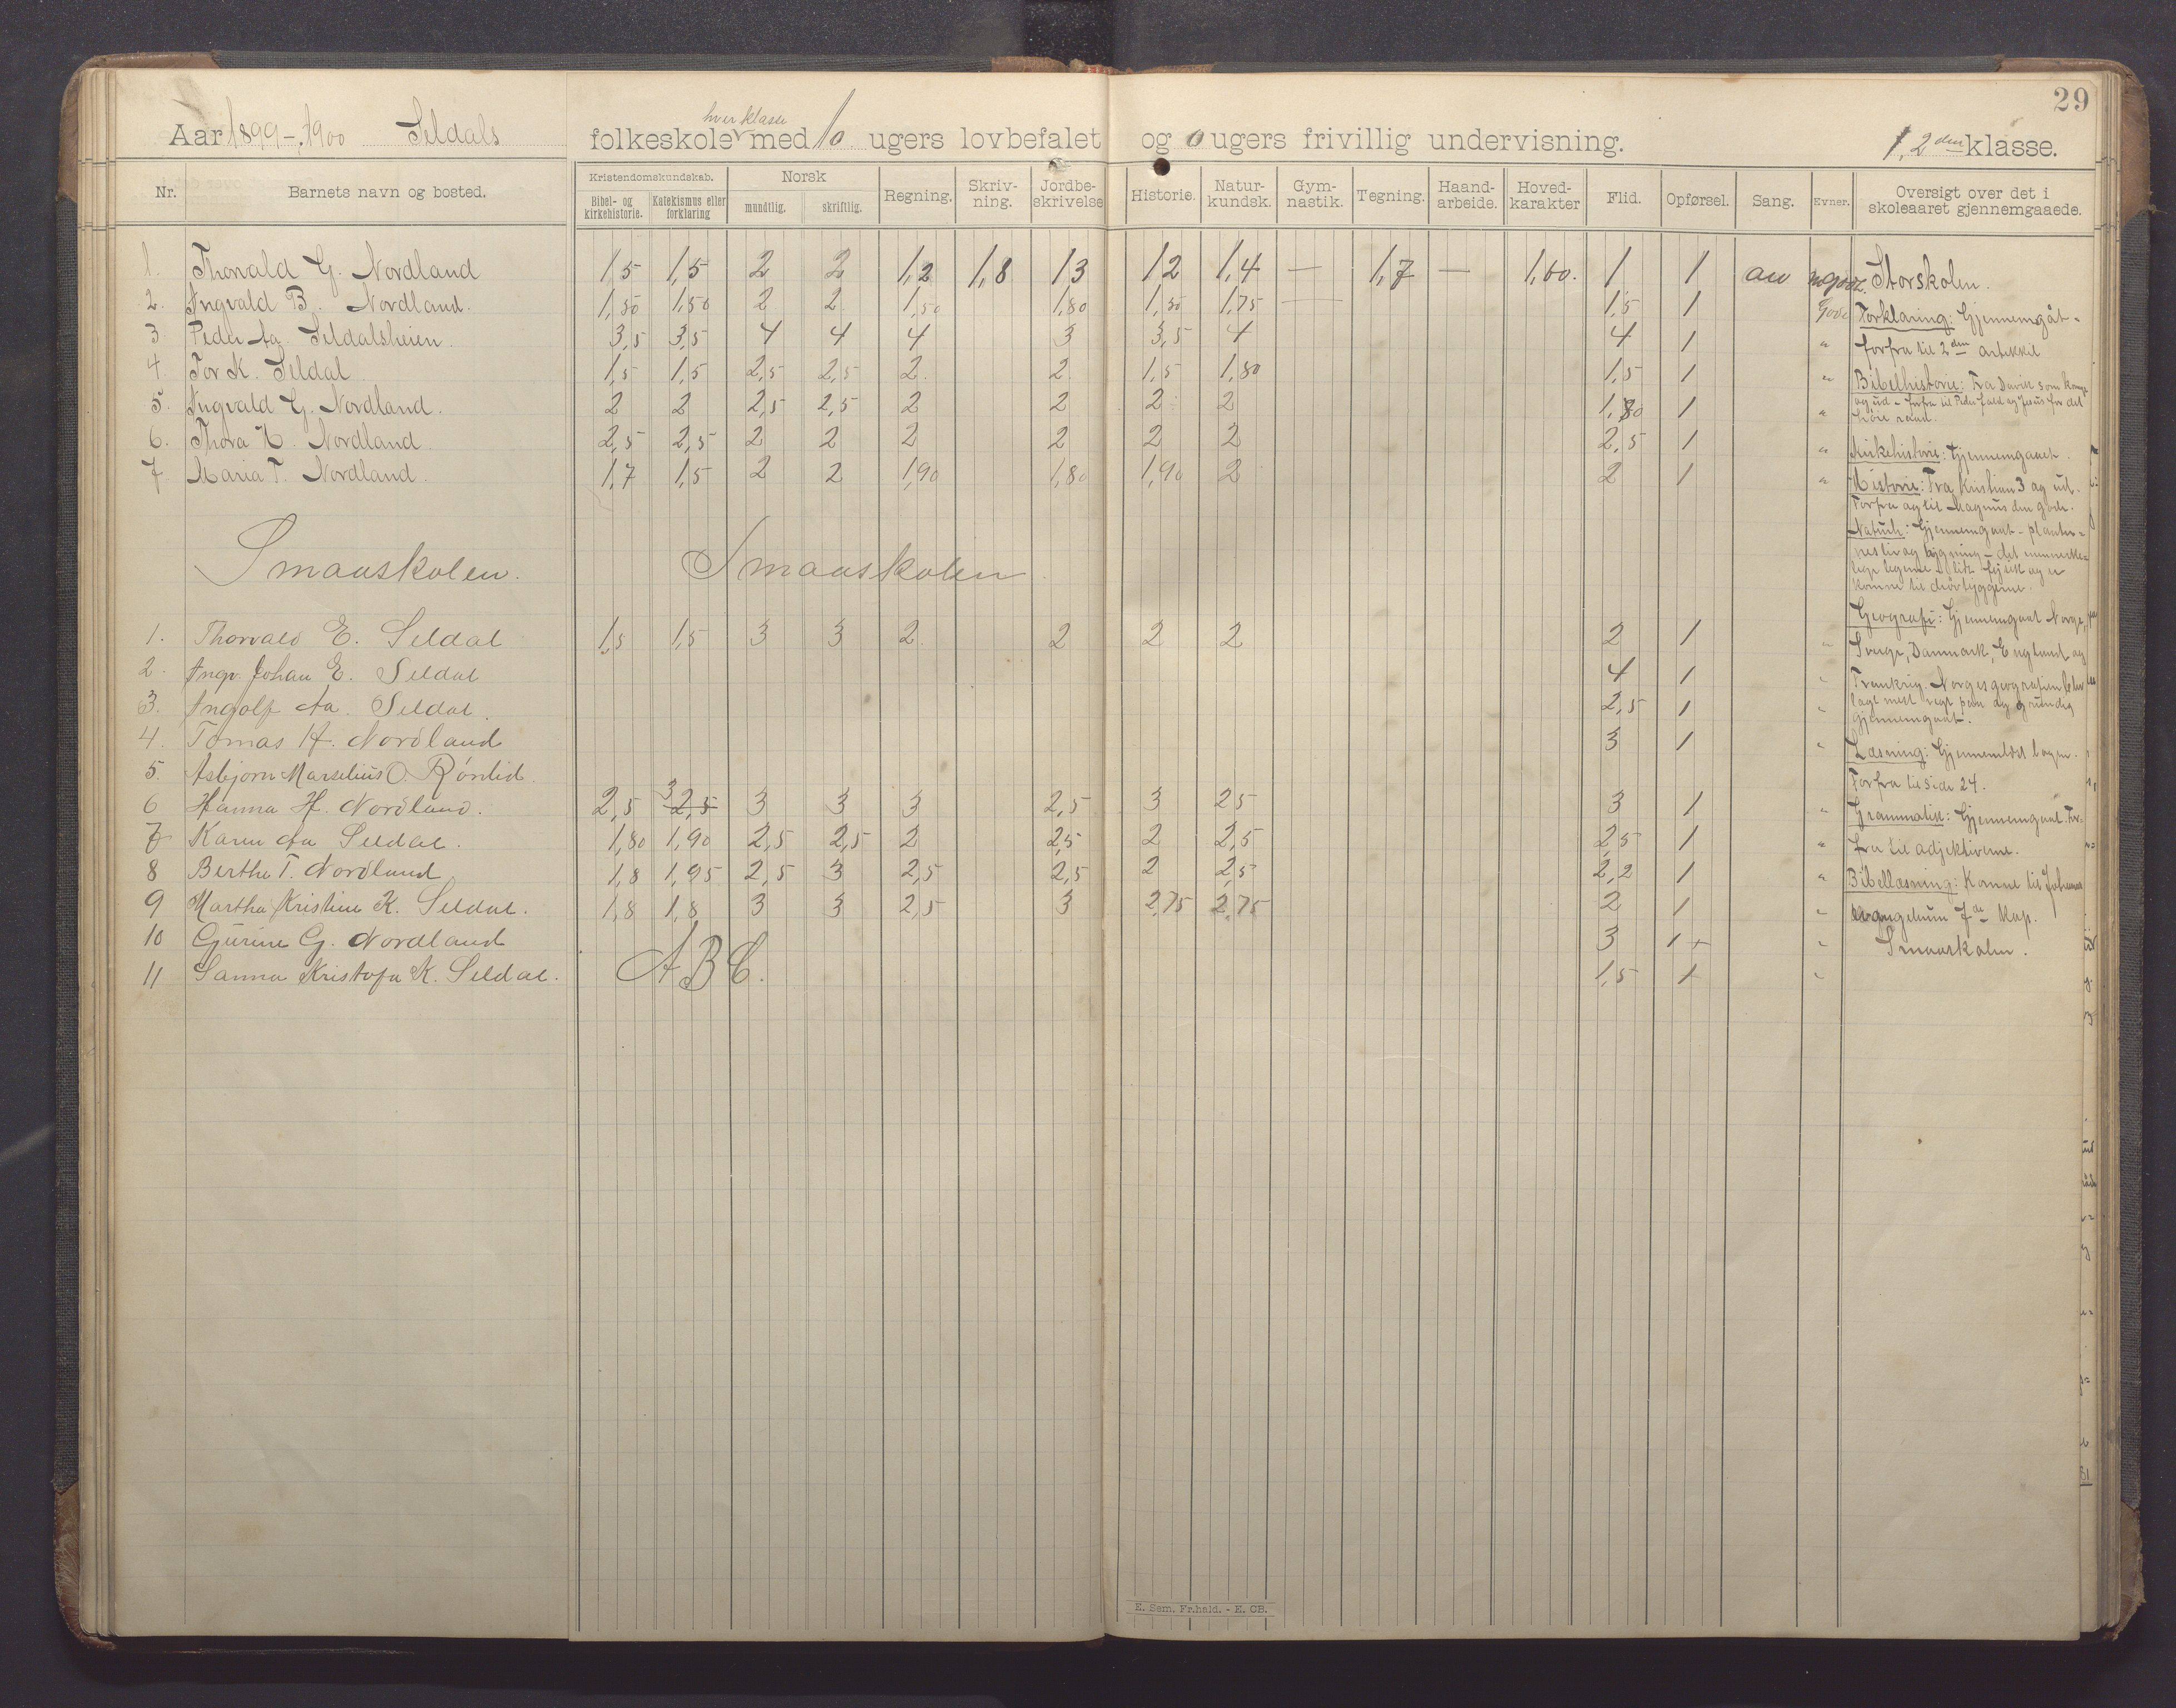 29
Aar 1899-1900 Seldals folkeskole hver klasse med 10 ugers lovbefalet og 0 ugers frivillig undervisning. 1, 2den klasse.
Nr. Barnets navn og bosted. Kristendomskundskab. Bibel- og kirkehistorie. Katekismus eller forklaring Norsk mundtlig. skriftlig. Regning. Skriv-ning. Jordbe-skrivelse Historie. Natur-kundsk. Gym-nastik. Tegning. Haand-arbeide. Hoved-karakter Flid. Opførsel. Sang. Evner. Oversigt over det i skoleaaret gjennemgaaede.
1. Thorvald G. Nordland 1,5 1,5 2 2 1,2 1,8 1,3 1,2 1,4 — 1,7 — 1,60. 1 1 Storskolen.
2. Ingvald B. Nordland. 1,50 1,50 2 2 1,50 1,80 1,50 1,75 1,5 1 Gode
3 Peder Aa. Seldalsheien. 3,5 3,5 4 4 4 3 3,5 4 4 1 "
4. Tor K. Seldal 1,5 1,5 2,5 2,5 2 2 1,5 1,80 1,5 1 "
5. Ingvald G. Nordland. 2 2 2,5 2,5 2 2 2 2 1,80 1 "
6. Thora N. Nordland. 2,5 2,5 2 2 2 2 2 2 2,5 1 "
7. Maria T. Nordland. 1,7 1,5 2 2 1,90 1,80 1,90 2 2 1 "
Forklaring: Gjennemgåt -
forfra til 2den artikkel
Bibelhistorie: Fra David som konge
og ud - forfra til Peders fald og Jesus for det
høie raad.
Kirkehistorie: Gjennemgaaet.
Historie: Fra Kristian 3 og ud.
Forfra og til Magnus den gode.
Naturh: Gjennemgaat - planter-
nes liv og bygning - det menneske-
lige legeme
komne til drøvtyggerne.
Geografi: Gjennemgaat Norge,
Sverge, Danmark, England og
Frankrig. Norges geografien blev
lagt mest vegt paa og grundig
gjennemgaat.
Læsning: Gjennemlæst bogen.
Forfra til side 24.
Grammatik: Gjennemgaat. For-
fra til adjektiverne.
Bibellæsning: Komne til Johannes
evangelium 7de kap.
Smaaskolen.
Smaaskolen. Smaaskolen.
1. Thorvald E. Seldal 1,5 1,5 3 3 2 2 2 2 2 1 "
2. Ingv. Johan E. Seldal 4 1 "
3. Ingolf Aa. Seldal. 2,5 1 "
4. Tomas H. Nordland 3 1 "
5. Asbjørn Marselius O Rönlid.
6 Hanna H. Nordland. 2,5 3 2,5 3 3 3 2,5 3 2,5 3 1 "
7 Karen Aa Seldal. 1,80 1,90 2,5 2,5 2 2,5 2 2,5 2,5 1 "
8 Berthe T. Nordland 1,8 1,95 2,5 3 2,5 2,5 2 2,5 2,2 1 "
9 Martha Kristine K. Seldal. 1,8 1,8 3 3 2,5 3 2,75 2,75 2 1 "
10 Gurine G. Nordland 3 1+ "
11 Sanna Kristofa K. Seldal. ABC. 1,5 + "
E. Sem. Fr.hald. - E. CB.